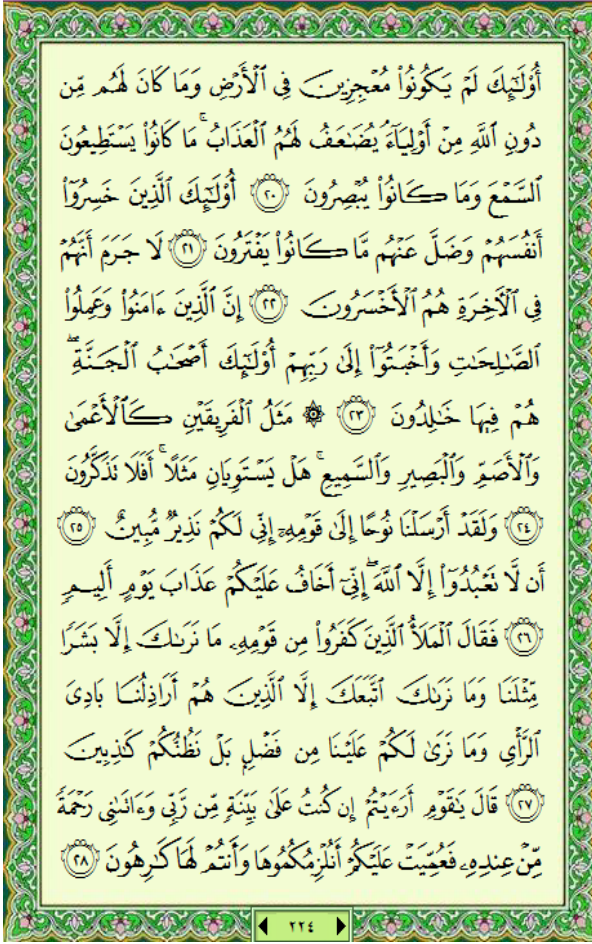 أُو۟لَٰٓئِكَ لَمْ يَكُونُوا۟ مُعْجِزِينَ فِى ٱلْأَرْضِ وَمَا كَانَ لَهُم مِّن
دُونِ ٱللَّهِ مِنْ أَوْلِيَآءَ يُضَٰعَفُ لَهُمُ ٱلْعَذَابُ ۚ مَا كَانُوا۟ يَسْتَطِيعُونَ
ٱلسَّمْعَ وَمَا كَانُوا۟ يُبْصِرُونَ ﴿٢٠﴾ أُو۟لَٰٓئِكَ ٱلَّذِينَ خَسِرُوٓا۟
أَنفُسَهُمْ وَضَلَّ عَنْهُم مَّا كَانُوا۟ يَفْتَرُونَ ﴿٢١﴾ لَا جَرَمَ أَنَّهُمْ
فِى ٱلْءَاخِرَةِ هُمُ ٱلْأَخْسَرُونَ ﴿٢٢﴾ إِنَّ ٱلَّذِينَ ءَامَنُوا۟ وَعَمِلُوا۟
ٱلصَّٰلِحَٰتِ وَأَخْبَتُوٓا۟ إِلَىٰ رَبِّهِمْ أُو۟لَٰٓئِكَ أَصْحَٰبُ ٱلْجَنَّةِ ۖ
هُمْ فِيهَا خَٰلِدُونَ ﴿٢٣﴾ ۞ مَثَلُ ٱلْفَرِيقَيْنِ كَٱلْأَعْمَىٰ
وَٱلْأَصَمِّ وَٱلْبَصِيرِ وَٱلسَّمِيعِ ۚ هَلْ يَسْتَوِيَانِ مَثَلًا ۚ أَفَلَا تَذَكَّرُونَ
﴿٢٤﴾ وَلَقَدْ أَرْسَلْنَا نُوحًا إِلَىٰ قَوْمِهِۦٓ إِنِّى لَكُمْ نَذِيرٌ مُّبِينٌ ﴿٢٥﴾
أَن لَّا تَعْبُدُوٓا۟ إِلَّا ٱللَّهَ ۖ إِنِّىٓ أَخَافُ عَلَيْكُمْ عَذَابَ يَوْمٍ أَلِيمٍ
﴿٢٦﴾ فَقَالَ ٱلْمَلَأُ ٱلَّذِينَ كَفَرُوا۟ مِن قَوْمِهِۦ مَا نَرَىٰكَ إِلَّا بَشَرًا
مِّثْلَنَا وَمَا نَرَىٰكَ ٱتَّبَعَكَ إِلَّا ٱلَّذِينَ هُمْ أَرَاذِلُنَا بَادِىَ
ٱلرَّأْىِ وَمَا نَرَىٰ لَكُمْ عَلَيْنَا مِن فَضْلٍۭ بَلْ نَظُنُّكُمْ كَٰذِبِينَ
﴿٢٧﴾ قَالَ يَٰقَوْمِ أَرَءَيْتُمْ إِن كُنتُ عَلَىٰ بَيِّنَةٍ مِّن رَّبِّى وَءَاتَىٰنِى رَحْمَةً
مِّنْ عِندِهِۦ فَعُمِّيَتْ عَلَيْكُمْ أَنُلْزِمُكُمُوهَا وَأَنتُمْ لَهَا كَٰرِهُونَ ﴿٢٨﴾
٢٢٤